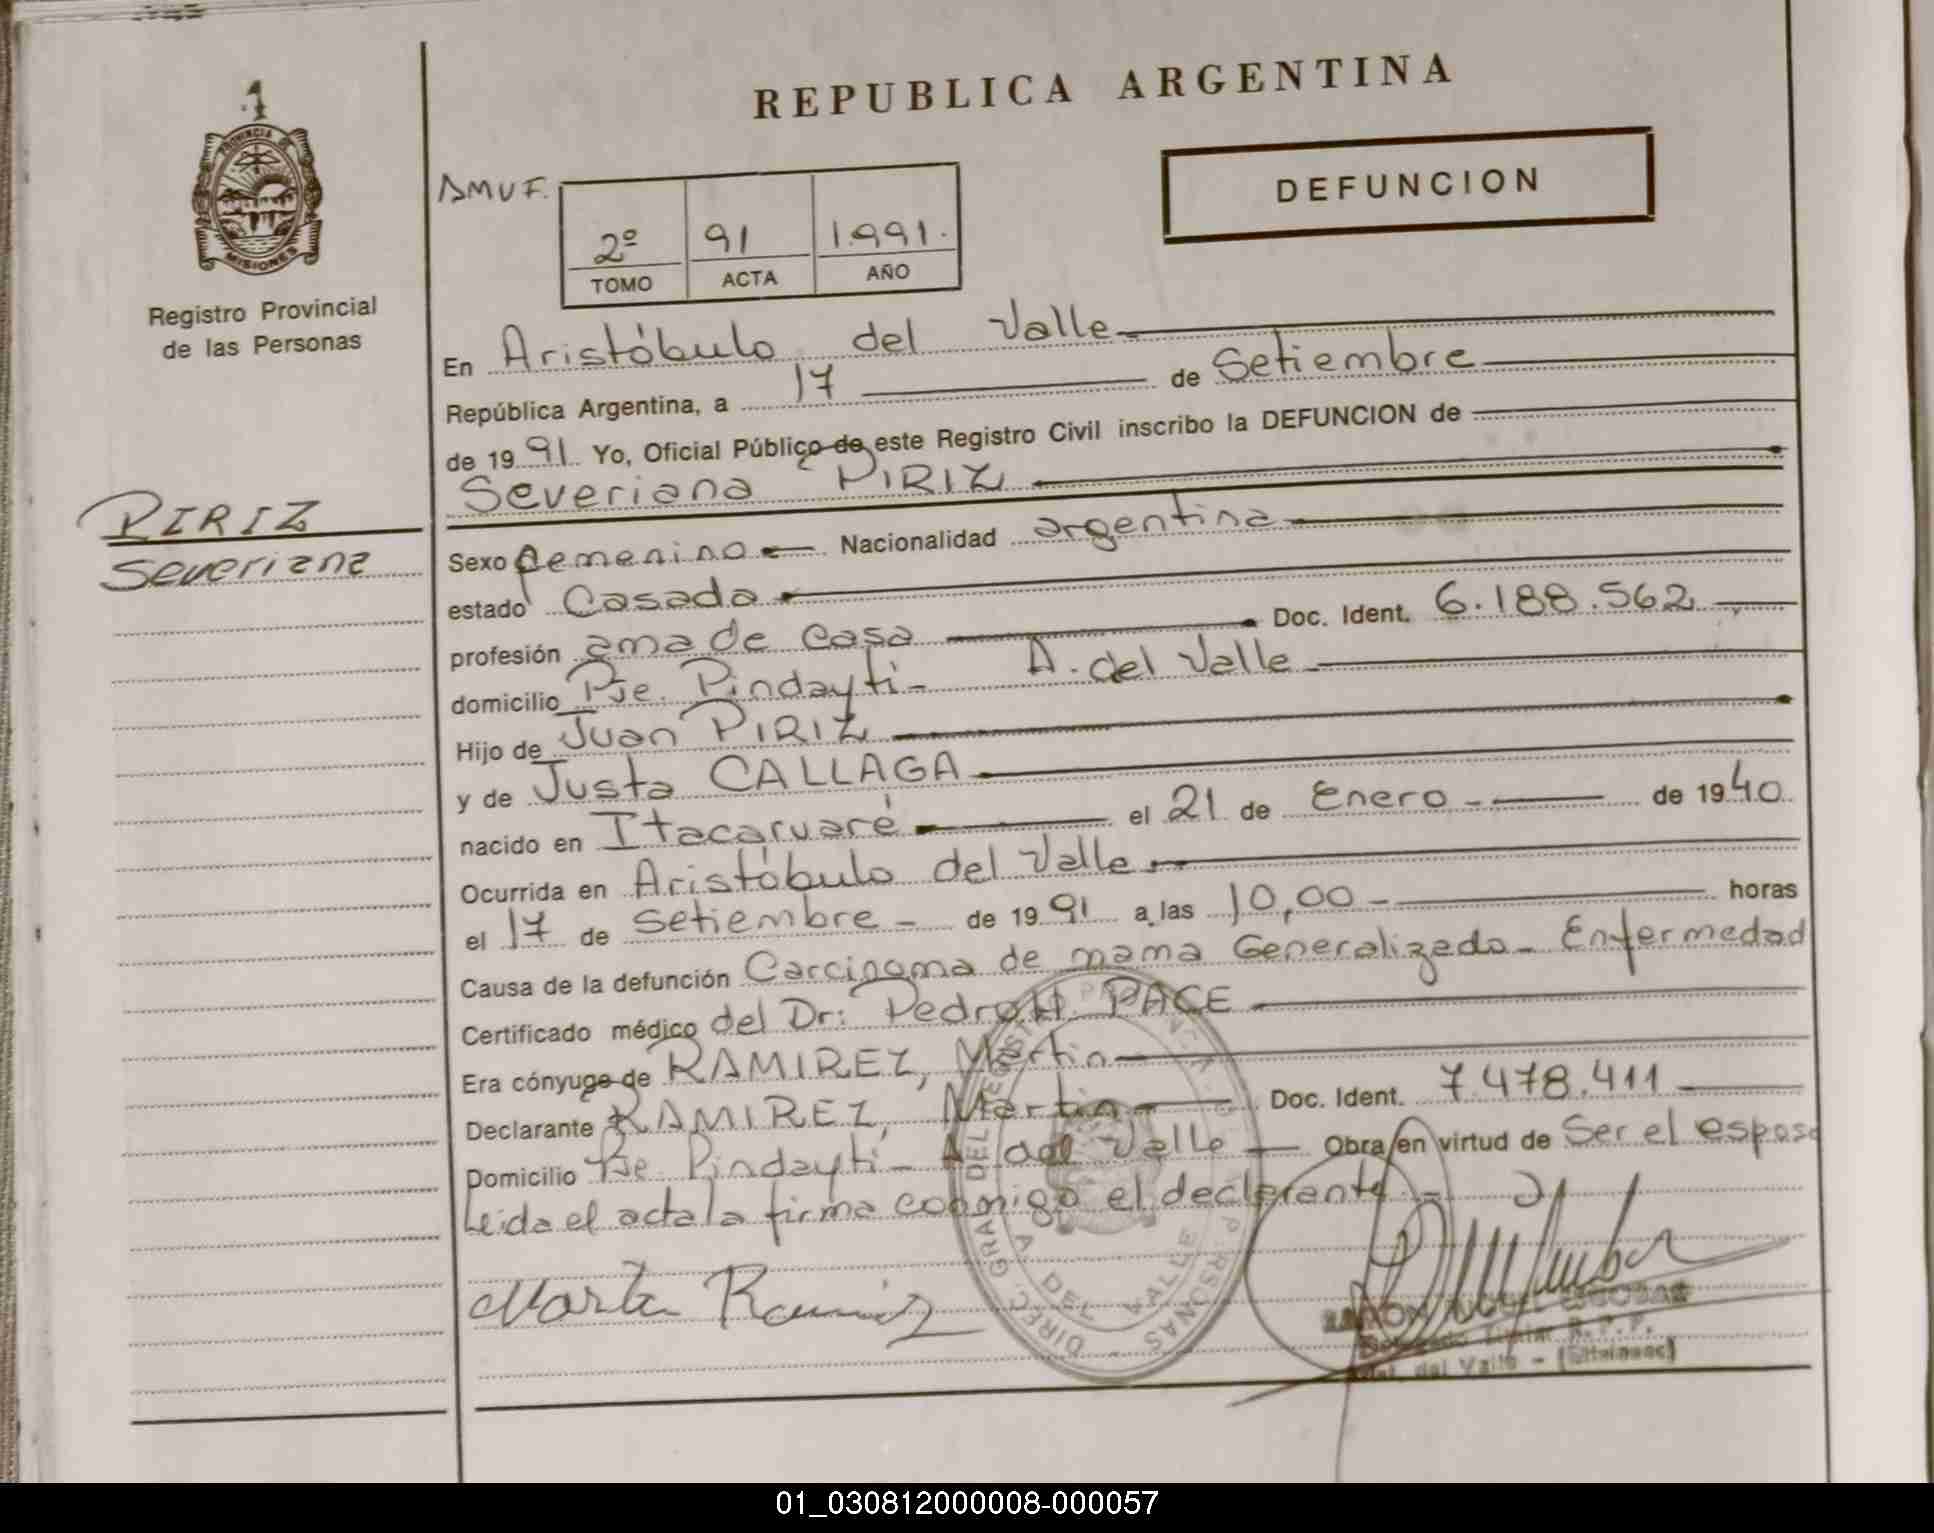 REPUBLICA ARGENTINA
DEFUNCION
PROVINCIA DE
MISIONES
Registro Provincial
de las Personas
AMVF.
2º 91 1.991.
TOMO ACTA AÑO
En Aristóbulo del Valle
República Argentina, a 17 de Setiembre
de 1991 Yo, Oficial Público de este Registro Civil inscribo la DEFUNCION de
Severiana PIRIZ
PIRIZ
Severiana
Sexo femenino Nacionalidad argentina
estado Casada
profesión ama de casa Doc. Ident. 6.188.562
domicilio Pje. Pindayti - A. del Valle
Hijo de Juan PIRIZ
y de Justa CALLAGA
nacido en Itacaruaré el 21 de Enero de 1940
Ocurrida en Aristóbulo del Valle
el 17 de Setiembre de 1991 a las 10,00 horas
Causa de la defunción Carcinoma de mama Generalizado - Enfermedad
Certificado médico del Dr: Pedro H. PACE
Era cónyuge de RAMIREZ, Martin
Declarante RAMIREZ, Martin Doc. Ident. 7.478.411
Domicilio Pje. Pindayti - A del Valle Obra en virtud de Ser el esposo
Leida el acta la firma conmigo el declarante -
Martin Ramirez
DEL VALLE
ESCOBAR
R.P.P.
del Valle - (Misiones)
01_030812000008-000057